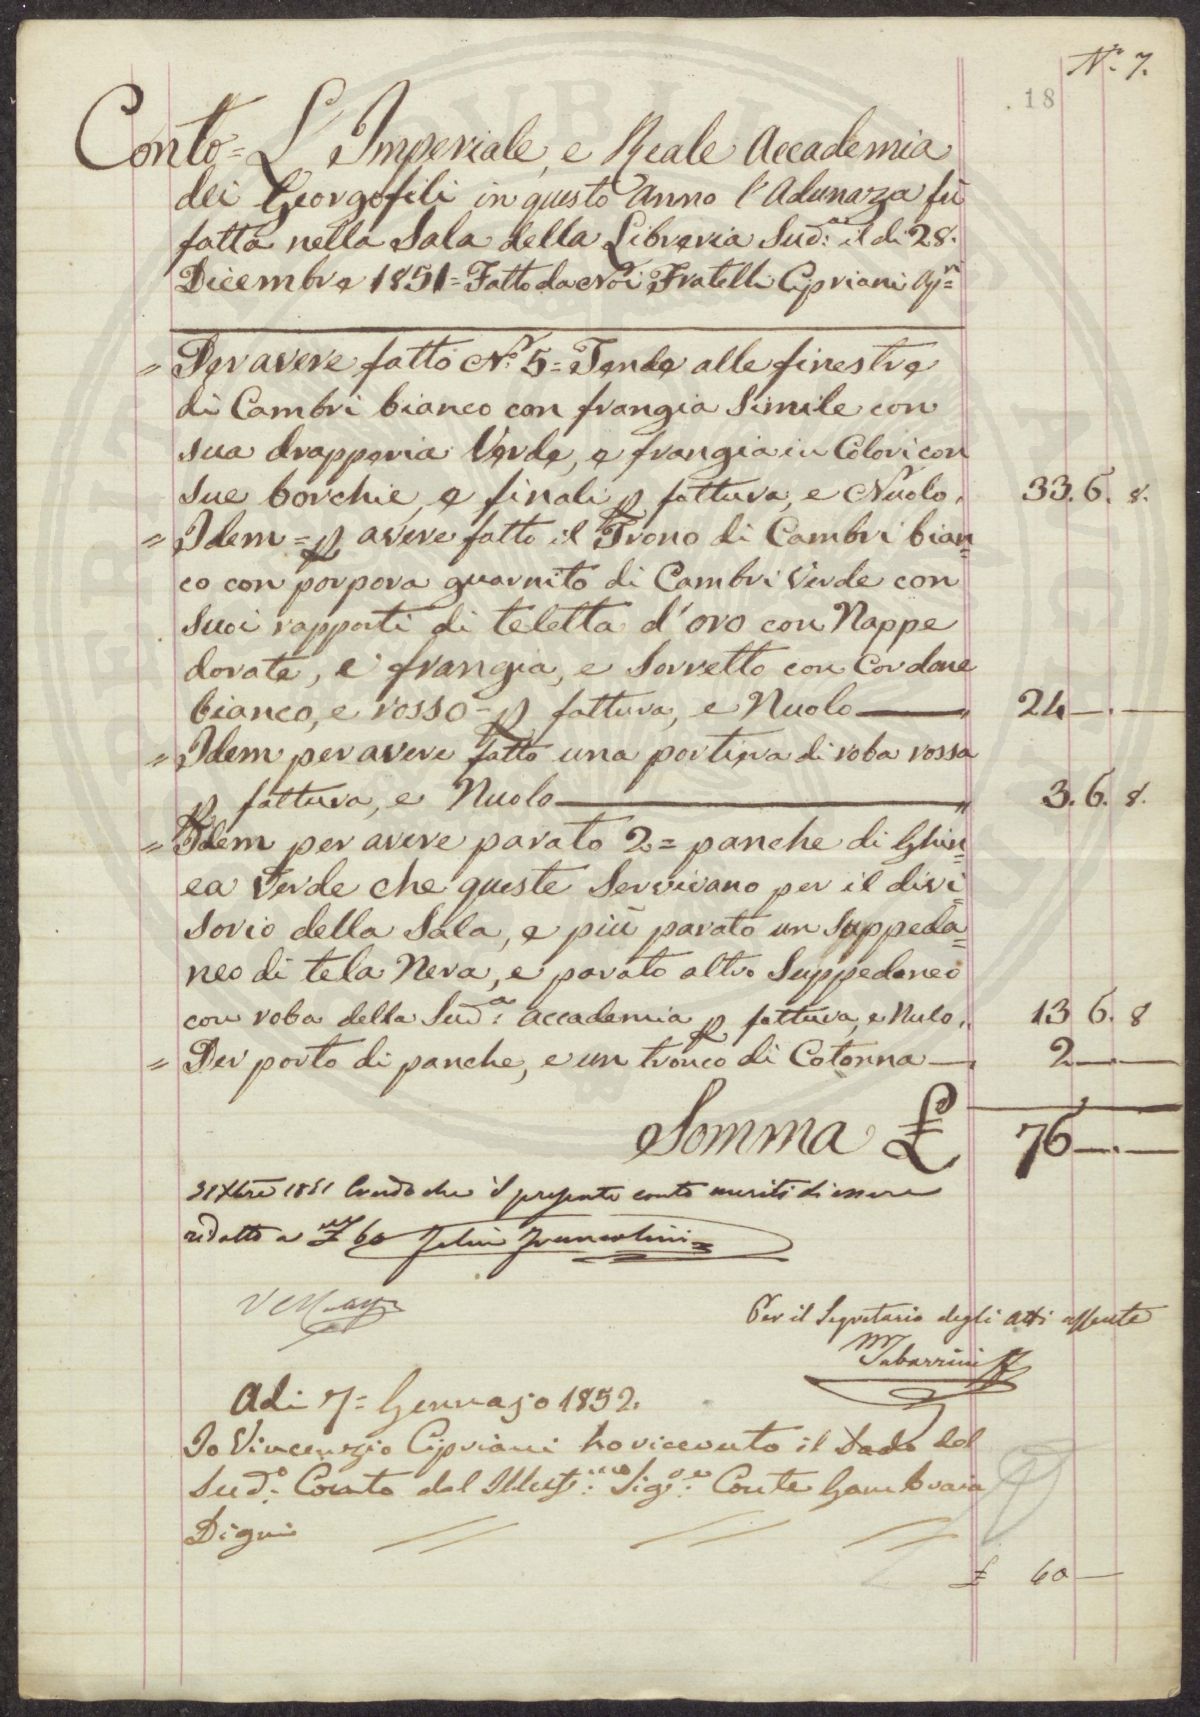 N.º 7.
18
Conto = L'Imperiale, e Reale Accademia
dei Georgofili in questo Anno l'Adunaza fù
fatta nella Sala della Libreria Sud.ª il di 28.
Dicembre 1851 = Fatto da Noi Fratelli Cipriani
= Per avere fatto N.º 5 = Tende alle finestre
di Cambri bianco con frangia Simile con
sua drapperia Verde, e frangia in Colori con
sue borchie, e finali p fattura, e Nuolo. 33. 6. 8.
= Idem = p avere fatto il Trono di Cambri bian=
co con porpora guarnito di Cambri Verde con
suoi rapporti di teletta d'oro con Nappe
dorate, e frangia, e Sorretto con Cordone
bianco, e rosso = p fattura, e Nuolo — 24 — . —
= Idem per avere fatto una portiera di roba rossa
p fattura, e Nuolo — 3. 6. 8.
= Idem per avere parato 2 = panche di Ghin=
ea Verde che queste Servivano per il divi=
sorio della Sala, e più parato un Suppeda=
neo di tela Nera, e parato altro Suppedaneo
con roba della Sud.ª Accademia p fattura, e Nulo. 13 6. 8
= Per porto di panche, e un tronco di Cotonna — 2 — . —
Somma £ 76 — . —
31 Xbre 1851 Credo che il presente conto meriti di essere
ridotto a £ 60 Felice Francolini
Per il Segretario degli Atti assente
M Tabarrini
Adi 7 = Gennajo 1852.
Io Vincenzio Cipriani ho ricevuto il Sado del
Sud.º Conto dal Illust.mo Sig.re Conte Cambraia
Digni
£ 60 —